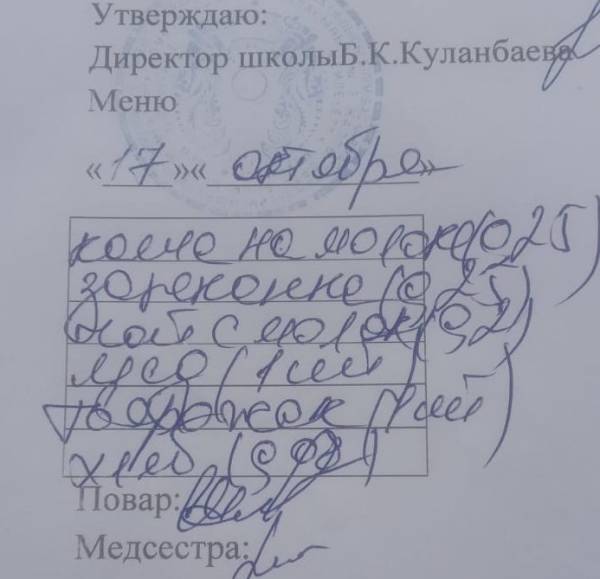 Утверждаю:
Директор школыБ.К.Куланбаева
Меню
«17»«октября»
каша на молоке (0,25)
запеканка (0,25)
Чай с молок (0,2)
(1 шт)
творожок (1 шт)
хлеб
Повар:
Медсестра: